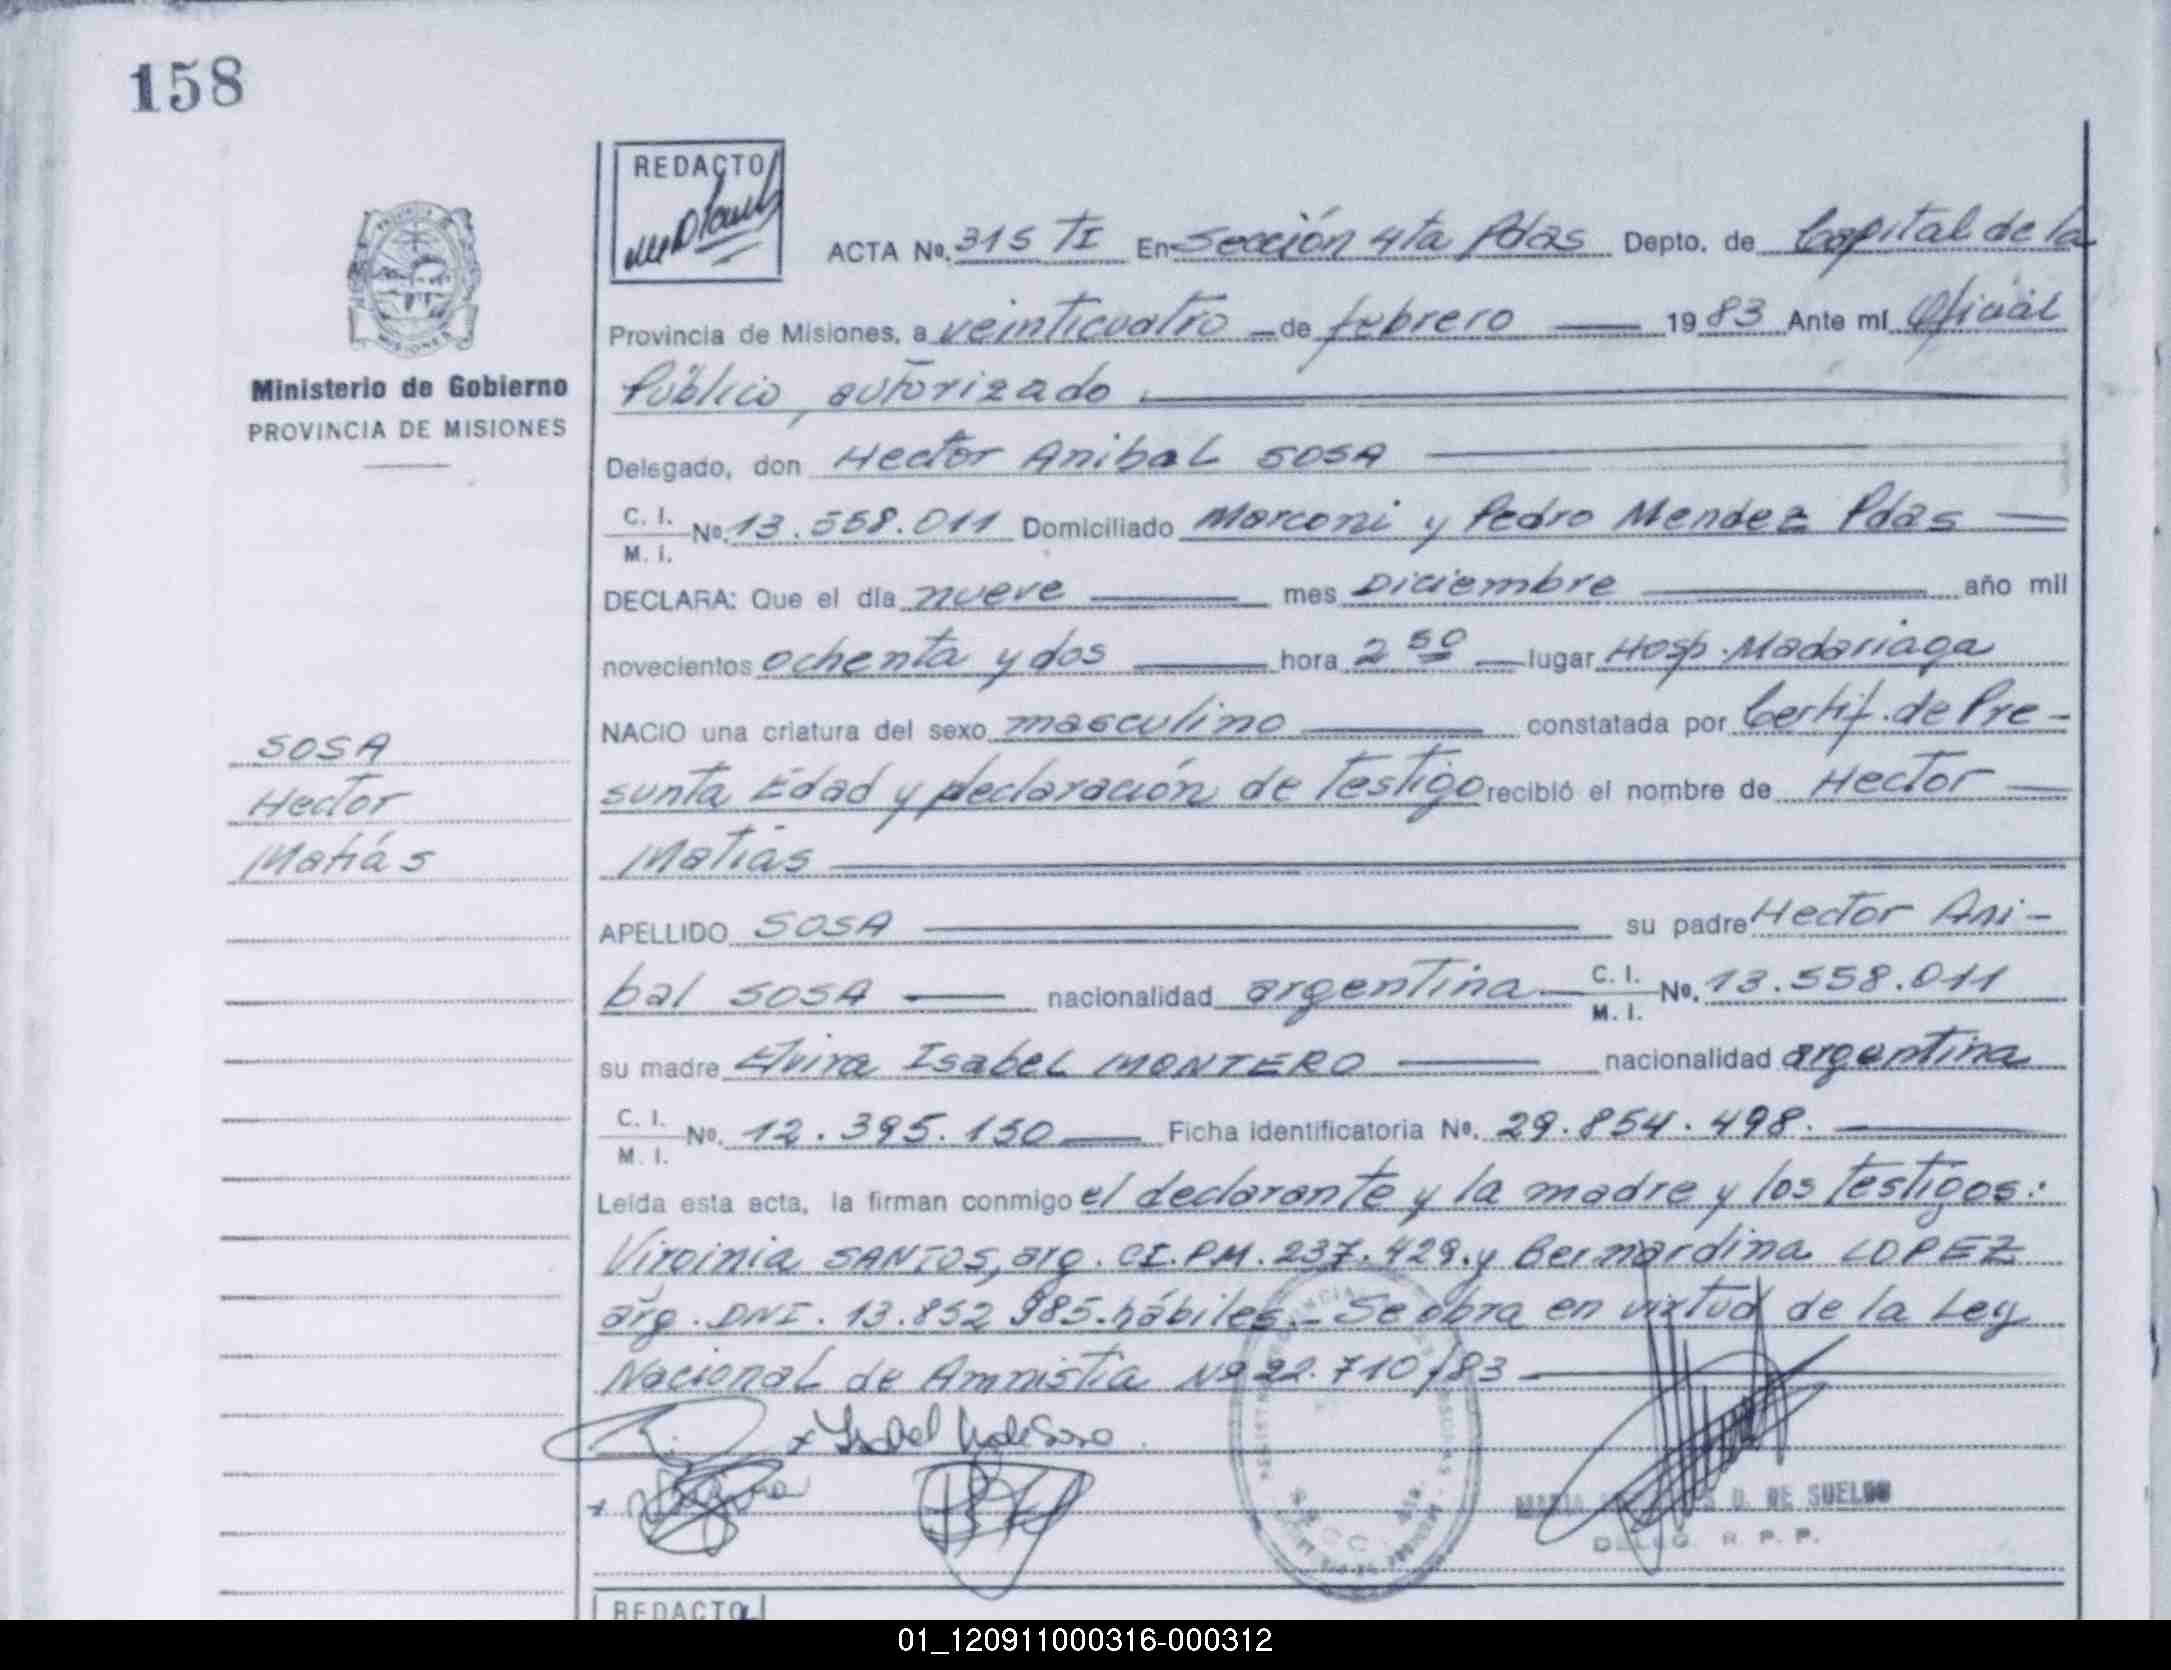 158
REDACTO
ACTA No. 315 TI En Sección 4ta Pdas Depto. de Capital de la
Provincia de Misiones, a veinticuatro de febrero 1983 Ante mí Oficial
Público, autorizado
Ministerio de Gobierno
PROVINCIA DE MISIONES
Delegado, don Hector Anibal SOSA
C. I.
M. I. No. 13.558.011 Domiciliado Marconi y Pedro Mendez Pdas
DECLARA: Que el día nueve mes Diciembre año mil
novecientos ochenta y dos hora 2 50 lugar Hosp. Madariaga
NACIO una criatura del sexo masculino constatada por Certif. de Pre-
sunta Edad y declaración de testigo recibió el nombre de Hector
Matias
SOSA
Hector
Matías
APELLIDO SOSA su padre Hector Ani-
bal SOSA nacionalidad argentina C. I.
M. I. No. 13.558.011
su madre Elvira Isabel MONTERO nacionalidad argentina
C. I.
M. I. No. 12.395.150 Ficha identificatoria No. 29.854.498.
Leída esta acta, la firman conmigo el declarante y la madre y los testigos:
Virginia SANTOS, arg. CI.PM. 237.429. y Bernardina LOPEZ
arg. DNI. 13.852 985. hábiles.- Se obra en virtud de la Ley
Nacional de Amnistia Nº 22.710/83
D. DE SUELDO
R. P. P.
REDACTO
01_120911000316-000312